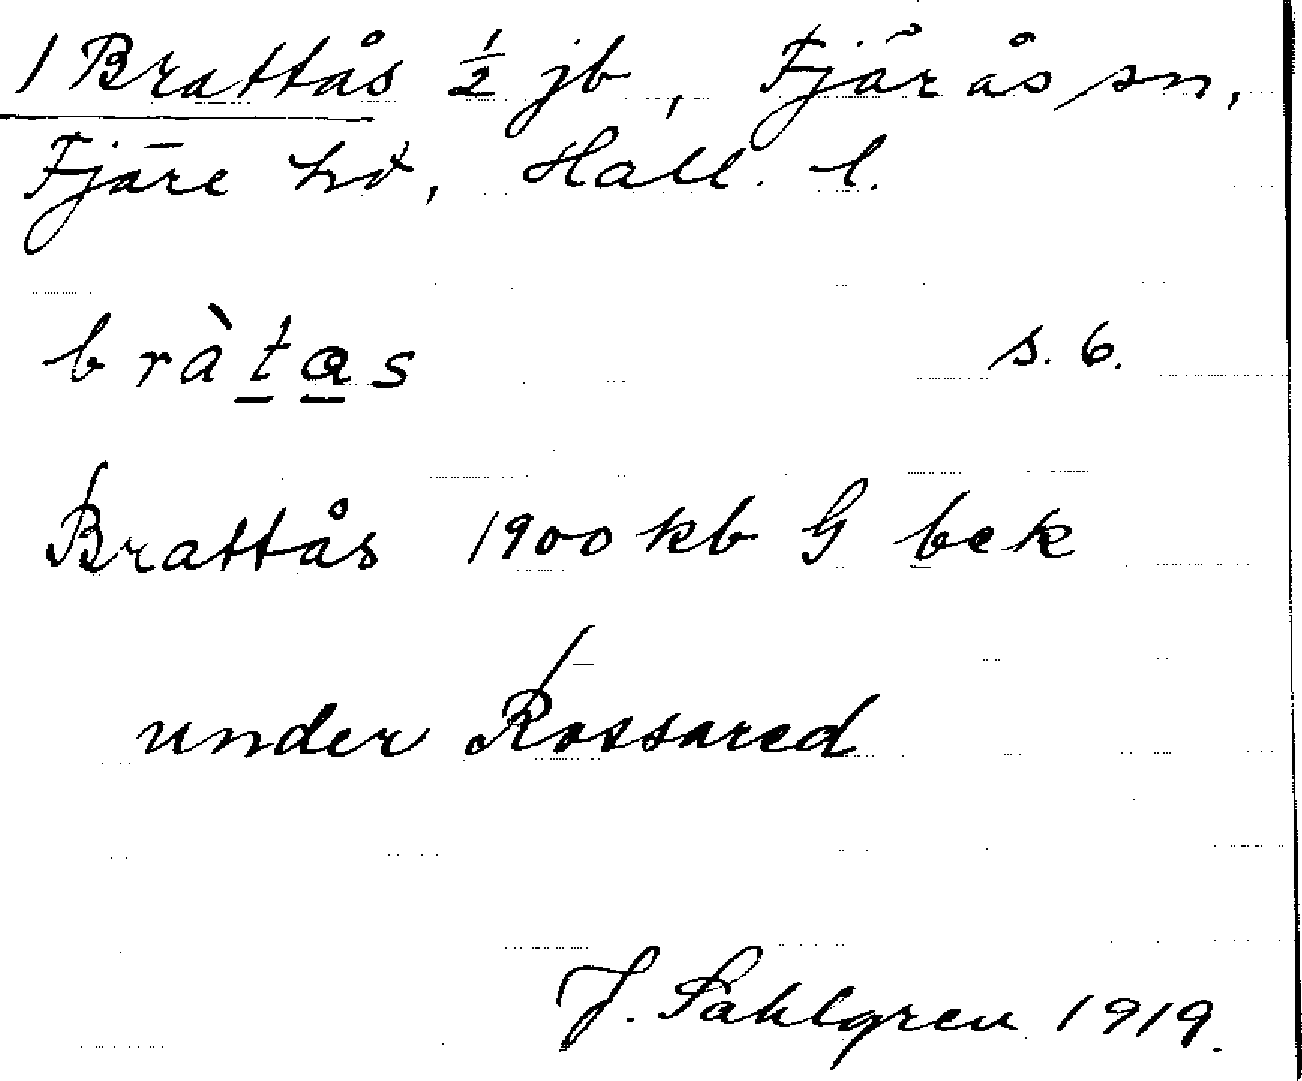 1 Brattås ½ jb, Fjärås sn,
Fjäre hd, Hall. l.
bràtas s. 6.
Brattås 1900 kb G bek
under Rossared
J. Sahlgren 1919.